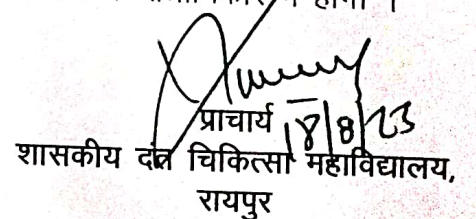 होगा ।
प्राचार्य 18/8/23
शासकीय दंत चिकित्सा महाविद्यालय,
रायपुर